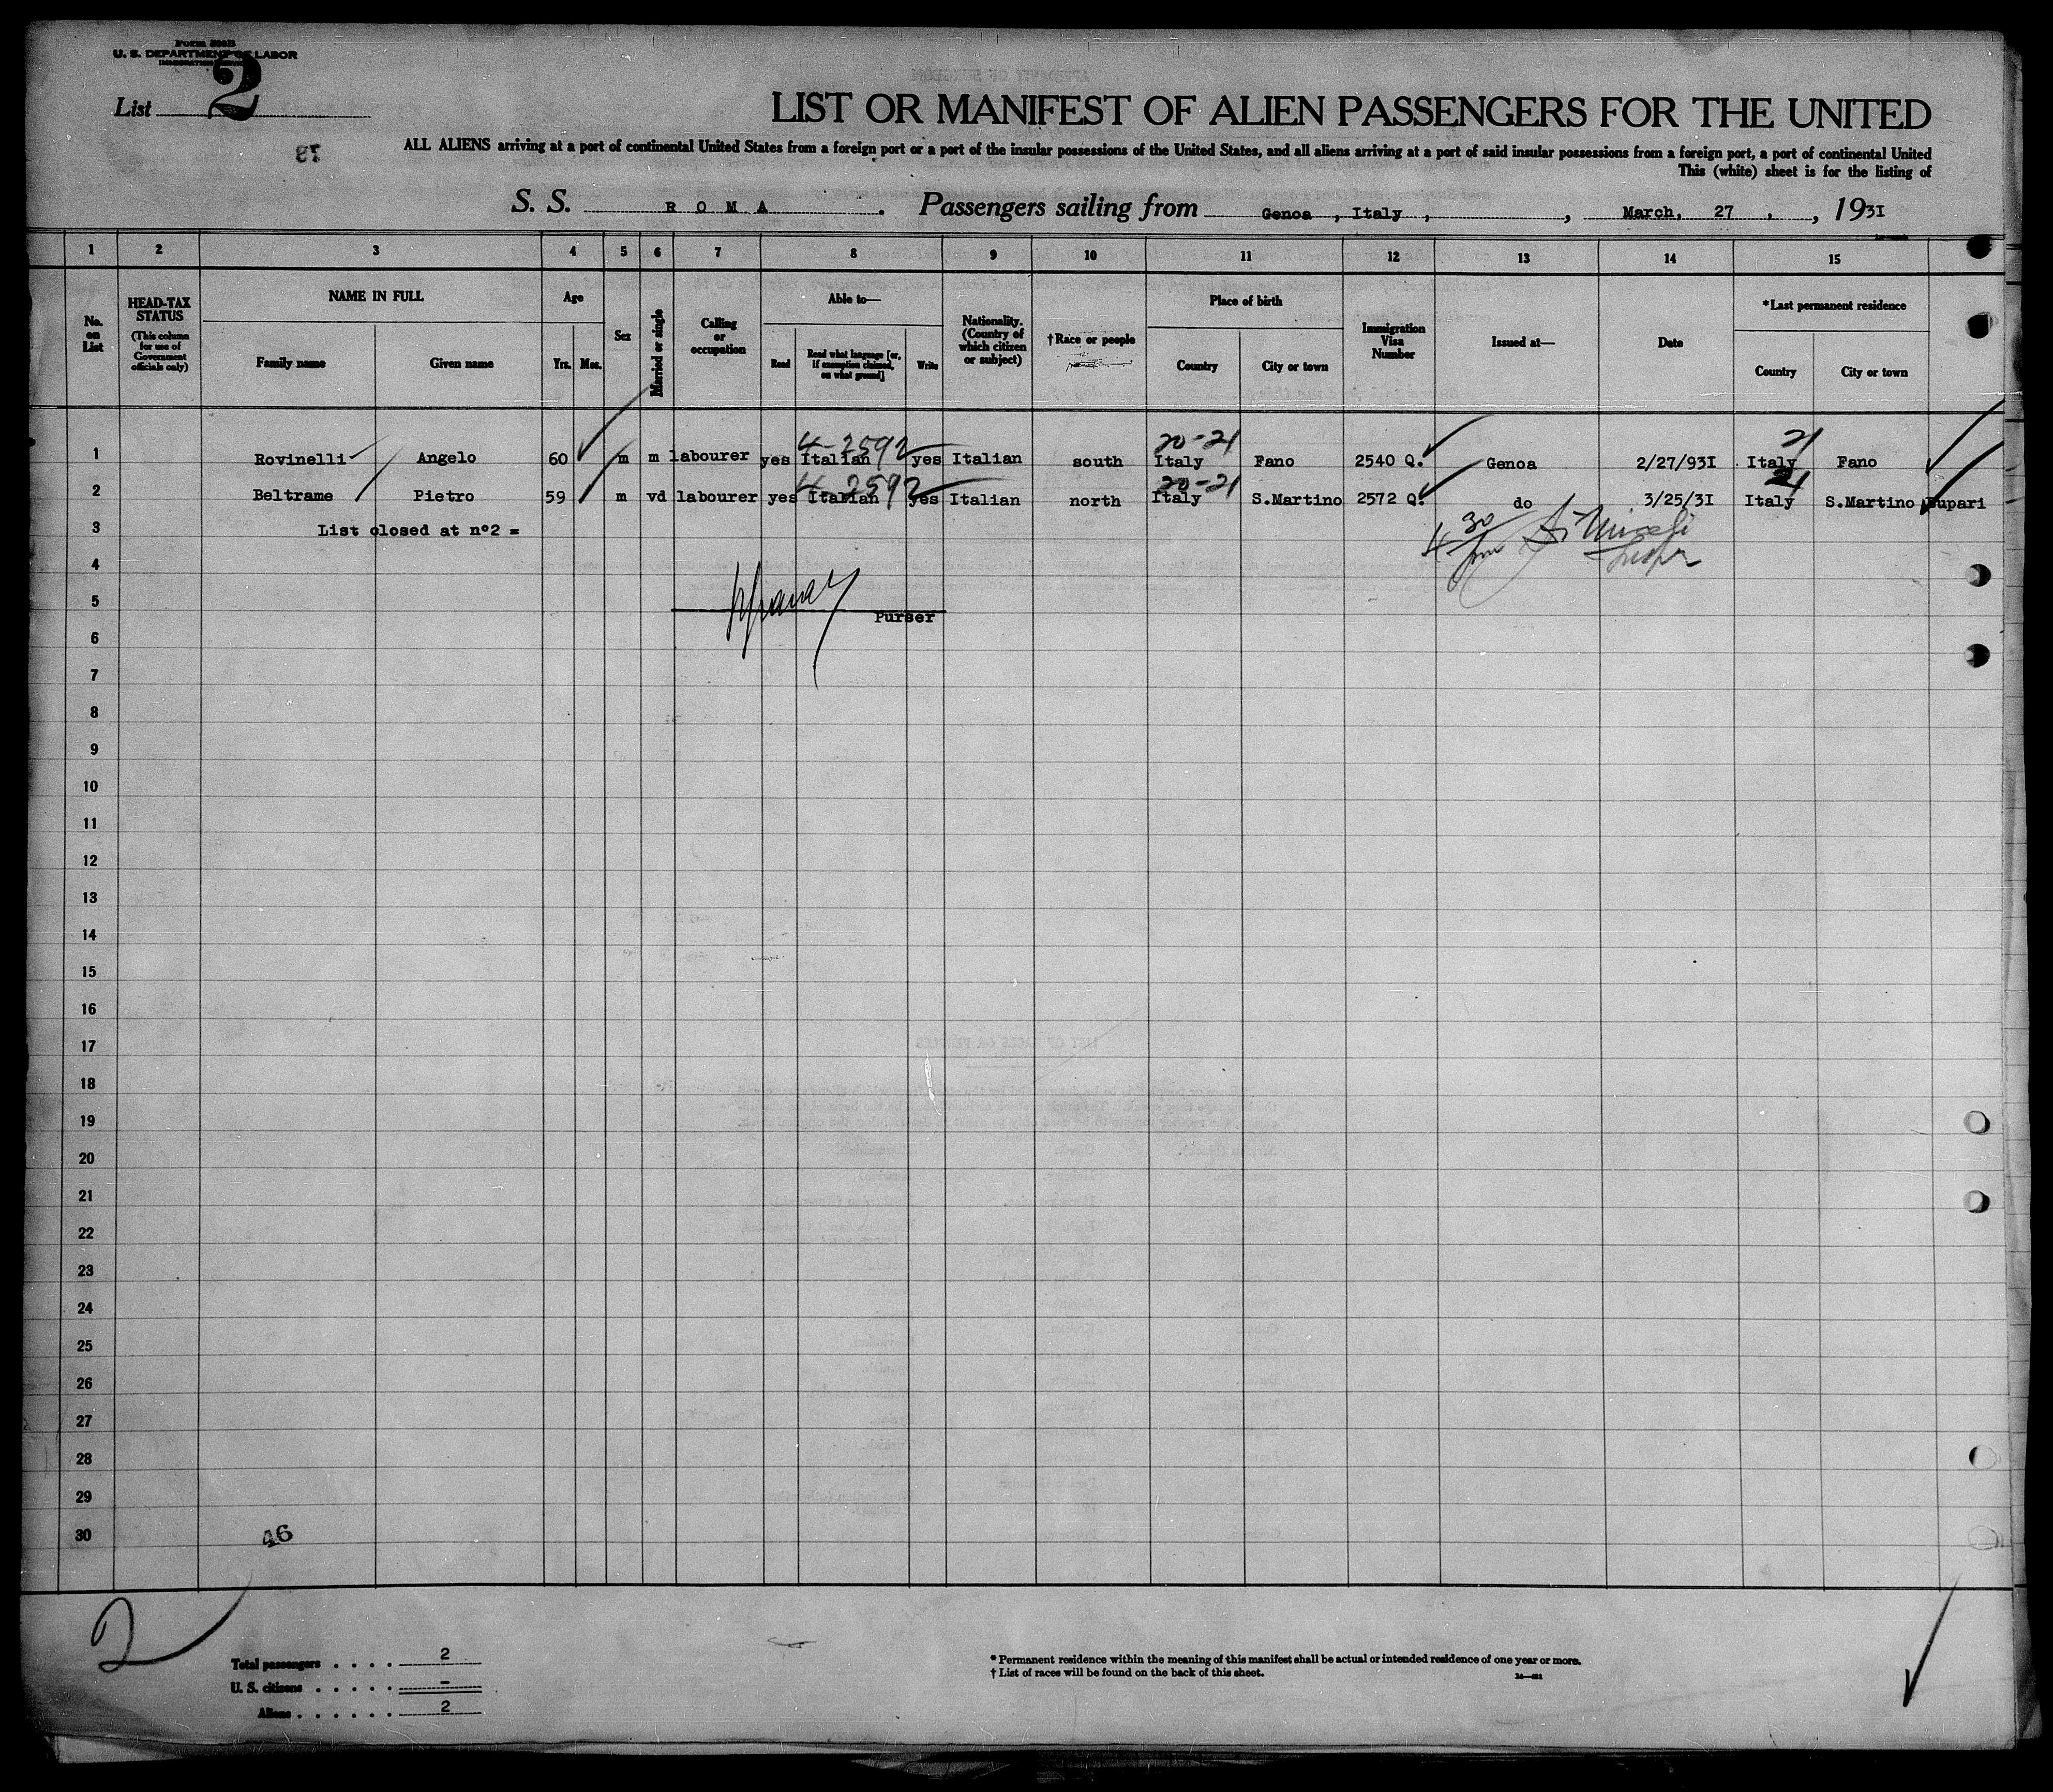 Form 500B
U. S. DEPARTMENT OF LABOR
IMMIGRATION SERVICE
List 2
LIST OR MANIFEST OF ALIEN PASSENGERS FOR THE UNITED
ALL ALIENS arriving at a port of continental United States from a foreign port or a port of the insular possessions of the United States, and all aliens arriving at a port of said insular possessions from a foreign port, a port of continental United
This (white) sheet is for the listing of
S. S. ROMA. Passengers sailing from Genoa, Italy, , March, 27, , 1931
1 2 3 4 5 6 7 8 9 10 11 12 13 14 15
No. on List
HEAD-TAX STATUS
(This column for use of Government officials only)
NAME IN FULL
Family name Given name
Age
Yrs. Mos.
Sex
Married or single
Calling or occupation
Able to—
Read Read what language [or, if exemption claimed, on what ground] Write
Nationality. (Country of which citizen or subject)
†Race or people
Place of birth
Country City or town
Immigration Visa Number
Issued at—
Date
*Last permanent residence
Country City or town
4-2592 20-21 21
1 Rovinelli Angelo 60 m m labourer yes Italian yes Italian south Italy Fano 2540 Q. Genoa 2/27/93I Italy Fano
4-2592 20-21 21
2 Beltrame Pietro 59 m vd labourer yes Italian yes Italian north Italy S.Martino 2572 Q. do 3/25/3I Italy S.Martino Lupari
3 List closed at n°2 =
4 30 pm
4
5
Purser
6
7
8
9
10
11
12
13
14
15
16
17
18
19
20
21
22
23
24
25
26
27
28
29
30
46
2
Total passengers . . . . 2
U. S. citizens . . . . . –
Aliens . . . . . . 2
* Permanent residence within the meaning of this manifest shall be actual or intended residence of one year or more.
† List of races will be found on the back of this sheet.